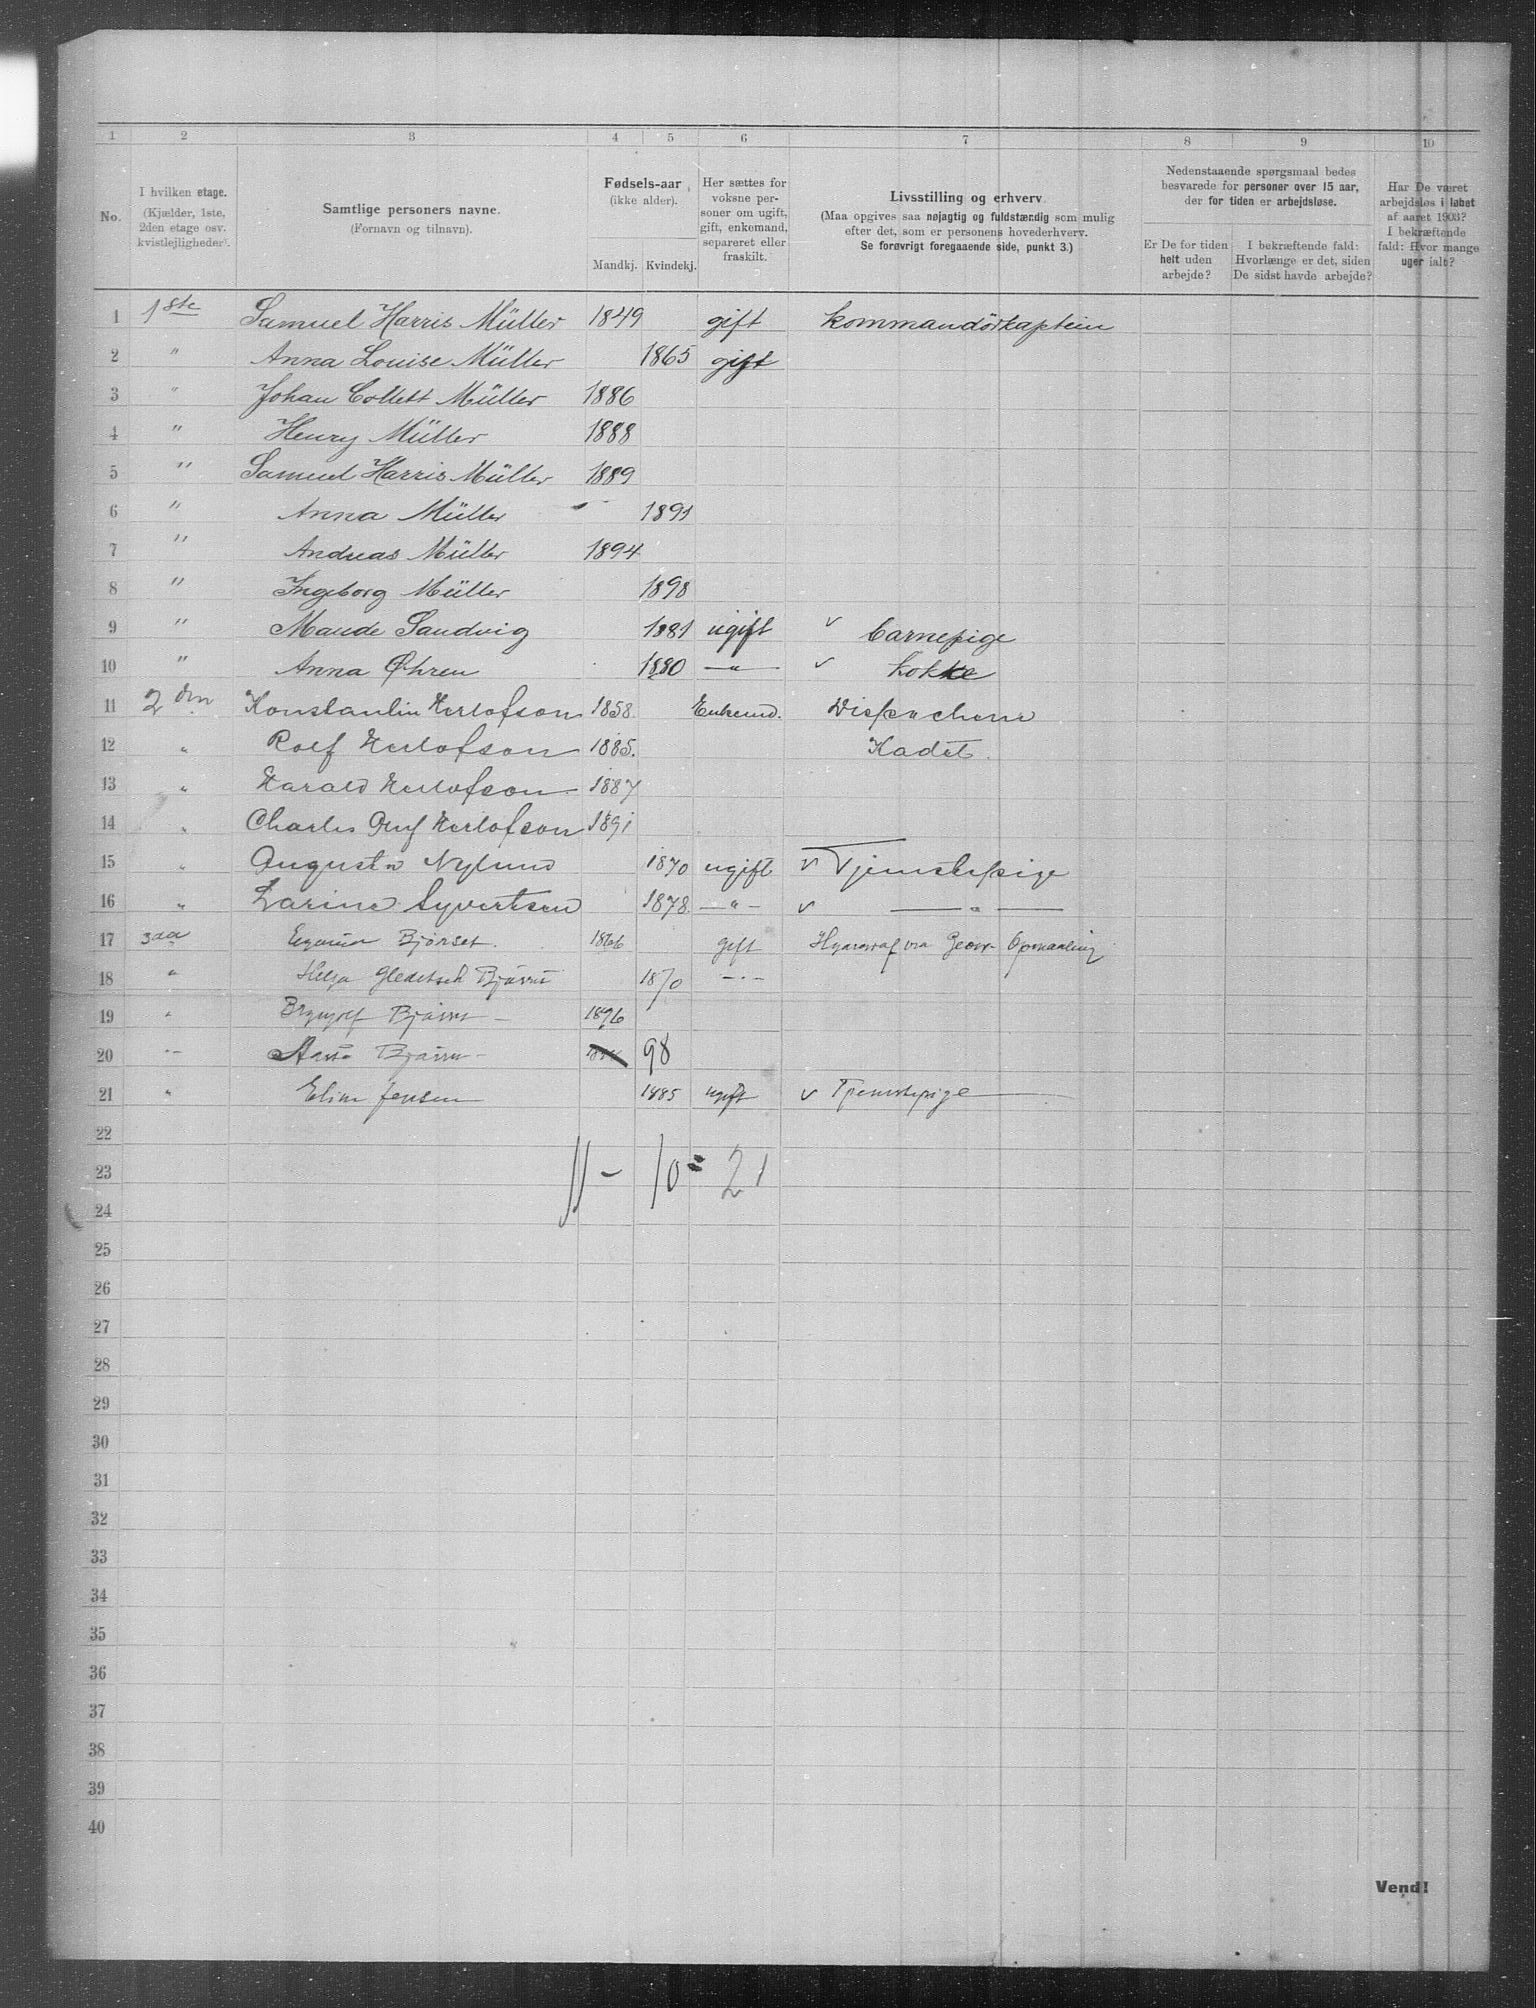 1 2 3 4 5 6 7 8 9 10
No.
I hvilken etage.
(Kjælder, 1ste,
2den etage osv.
kvistleiligheder).
Samtlige personers navne.
(Fornavn og tilnavn).
Fødsels-aar
(ikke alder).
Mandkj. Kvindekj.
Her sættes for
voksne per-
soner om ugift,
gift, enkemand,
separeret eller
fraskilt.
Livsstilling og erhverv.
(Maa opgives saa nøjagtig og fuldstændig som mulig
efter det, som er personens hovederhverv.
Se forøvrigt foregaaende side, punkt 3.)
Nedenstaaende spørgsmaal bedes
besvarede for personer over 15 aar,
der for tiden er arbejdsløse.
Er De for tiden
helt uden
arbejde?
I bekræftende fald:
Hvorlænge er det, siden
De sidst havde arbejde?
Har De været
arbejdsløs i løbet
af aaret 1903?
I bekræftende
fald: Hvor mange
uger ialt?
1 1ste Samuel Harris Müller 1849 gift kommandörkaptein
2 " Anna Louise Müller 1865 gift
3 " Johan Collett Müller 1886
4 " Henry Müller 1888
5 " Samuel Harris Müller 1889
6 " Anna Müller 1891
7 " Andreas Müller 1894
8 " Ingeborg Müller 1898
9 " Maude Sandvig 1881 ugift v barnepige
10 " Anna Øhren 1880 —"— v kokke
11 2den Konstantin Herlofson 1858. Enkemd. Dispachør
12 " Rolf Herlofson 1885. Kadet.
13 " Harald Herlofson 1887
14 " Charles Oluf Herlofson 1891
15 " Augusta Nylund 1870 ugift v Tjenestepige
16 " Larine Syvertsen 1878. —"— v —"—
17 3die Bjørset. 1866 gift Opmaaling
18 " Helga Gleditsch Bjørset 1870 —"—
19 " Brynjolf Bjørset 1896
20 " Aasa Bjørset 98
21 " Eline Jensen 1885 ugift v Tjenestepige
22
23 11 - 10 = 21
24
25
26
27
28
29
30
31
32
33
34
35
36
37
38
39
40
Vend!